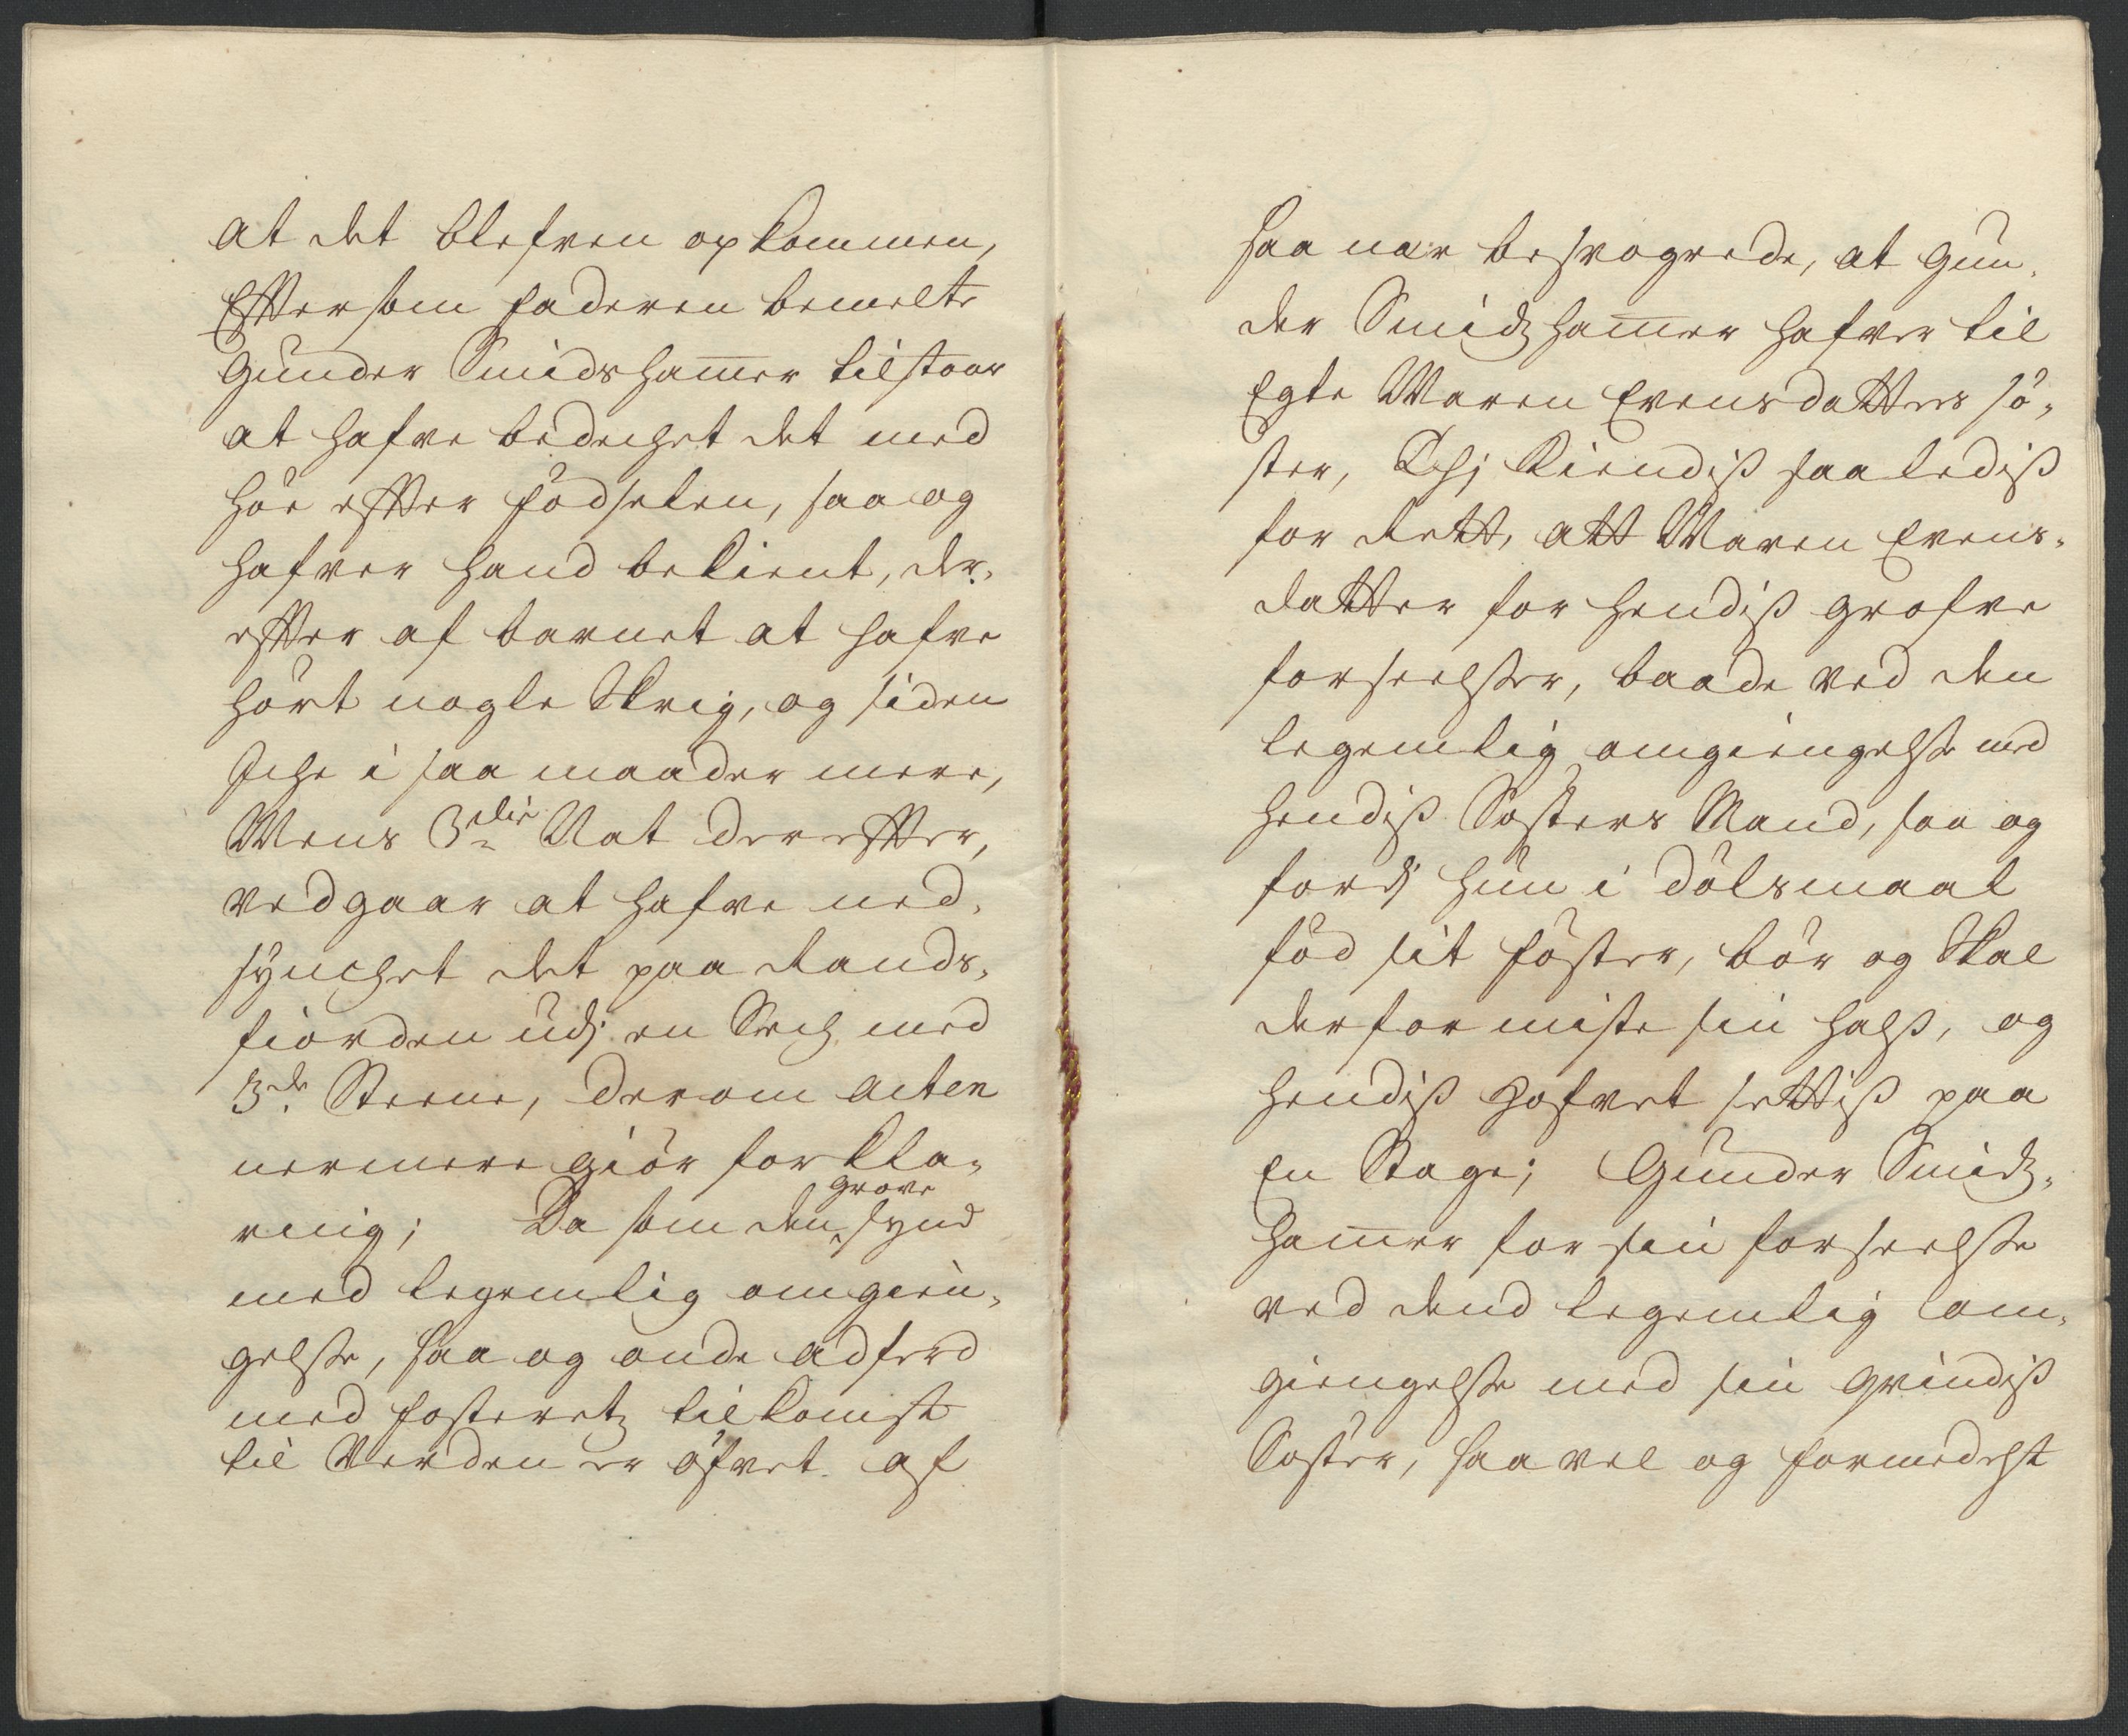 at det blefven opkommen,
Efftersom faderen bemelte
Gunder Smidshamer tilstaar
at hafve bedechet det med
höe effter födselen, saa og
hafver hand bekient, der,
effter af barnet at hafve
hört nogle Skrig, og siden
Iche i saa maader mere,
Mens 3die Nat dereffter,
vedgaar at hafve ned,
synchet det paa Lands,
fiorden udj en Sech med
3de Steene, derom acten
nermere giör forkla,
ring; Da som den grove synd
med legemlig omgien,
gelsse, saa og onde adferd
med fosteretz tilkomst
til Verden er öfvet af
saa nær besvogrede, at Gun,
der Smidzhamer hafver til
Egte Maren Evensdatters sö,
ster, Thj kiendiss saalediss
for Rett, att Maren Evens,
datter for hendiss grofve
forseelsser, baade ved den
legemlig omgiengelsse med
hendiss Søsters Mand, saa og
fordj hun i dölsmaal
föd sit föster, bör og Skal
derfor miste sin halss, og
hendiss Hofvet settiss paa
En Stage; Gunder Smidz,
hamer for sin forseelsse
ved dend legemlig om,
giengelsse med sin qvindiss
Søster, saavel og formedelst